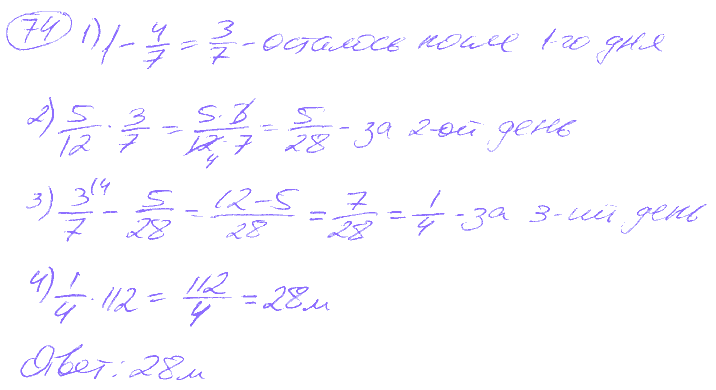 74 1) 1 - 4/7 = 3/7 - осталось после 1-го дня
2) 5/12 · 3/7 = 5·3/12·7 = 5/28 - за 2-ой день
3) 3/7 - 5/28 = 12-5/28 = 7/28 = 1/4 - за 3-ий день
4) 1/4 · 112 = 112/4 = 28м
Ответ: 28м